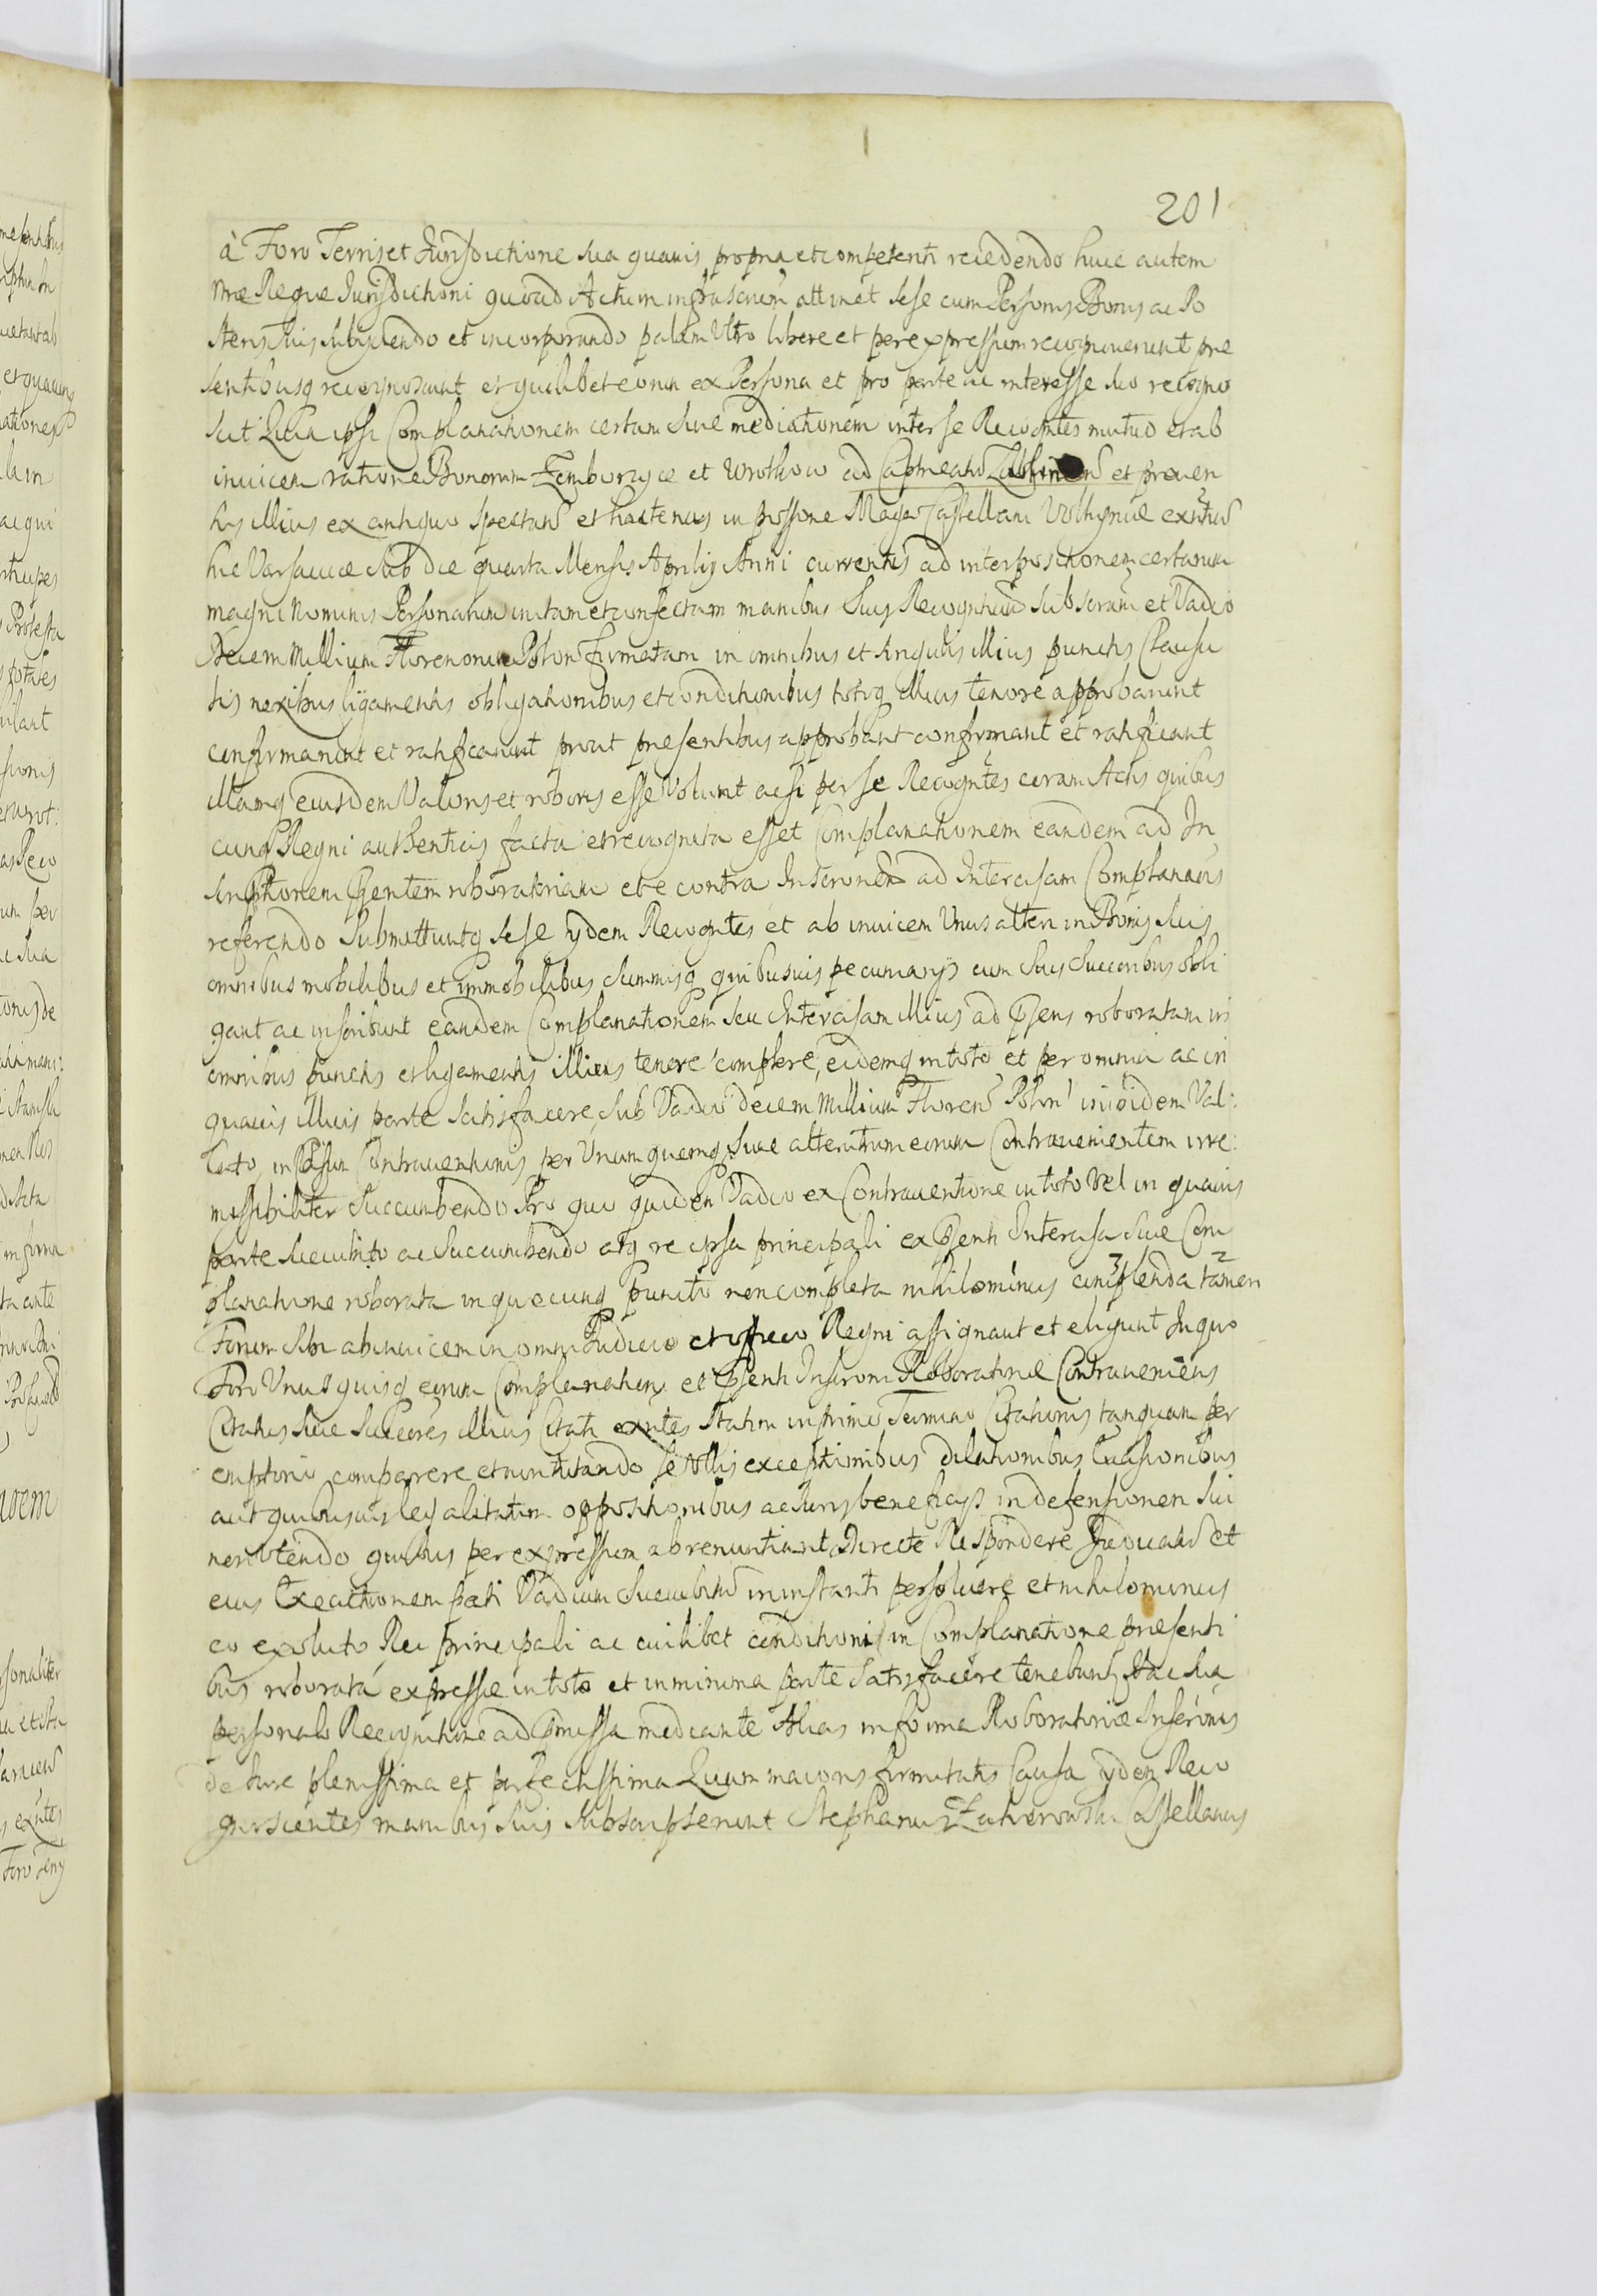 201
à Foro Terris et Jurisdictione sua quauis propria et competenti recedendo huic autem
nræ Regiæ Jurisdictioni quoad Actum infrascriptum attinet sese cum Personis Bonis ac Po
steris suis subijciendo et incorporando palam Vltro libere et per expressum recognouerunt præ
sentibusq recognoscunt et quilibet eorum ex Persona et pro parte ac interesse suo recogno
scit Quia ipsi Complanationem certam siue mediationem inter se Recogntes mutuo et ab
inuicem ratione Bonorum Zemborzyce et Wrotkow ad Capitneatu Lublinen et prouen
tus illius ex antiquo spectan et hactenus in possione Magci Castellani Volhyniæ exntiu
hic Varsauiæ sub die quarta Mensis Aprilis Anni currentis ad interpositionem certarum
magni Nominis Personarum initam et confectam manibus suis Recogntium subscram et Vadio
Decem Millium Florenorum Polon firmatam in omnibus et singulis illius punctis Clausu
lis nexibus ligamentis obligationibus et conditionibus totoq illius tenore approbarunt
confirmarunt et ratificarunt prout presentibus approbant confirmant et ratificant
illamq eiusdem Valoris et roboris esse Volunt acsi per se Recogntes coram Actis quibus
cunq Regni authenticis facta et recognita esset Complanationem eandem ad In
scriptionem Psentem roboratoriam et e contra Inscronem ad Intercisam Complanaois
referendo Submittuntq sese ijdem Recogntes et ab inuicem Vnus alteri in Bonis suis
omnibus mobilibus et immobilibus summisq quibusuis pecuniarijs cum suis Succoribus obli
gant ac inscribunt eandem Complanationem seu Intercisam illius ad Psens roboratam in
omnibus punctis et ligamentis illius tenere complere, eidemq in toto et per omnia ac in
quauis illius parte satisfacere, sub Vadio decem Millium Floren Poln inibidem Val:
lato in casum Contrauentionis per Vnumquemq siue alterutrum eorum Contrauenientem irre:
missibiliter succumbendo Pro quo quidem Vadio ex Contrauentione in toto Vel in quauis
parte succubito ac succumbendo atq re ipsa principali ex Psenti Intercisa siue Com
planatione roborata in quocunq puncto non completa nihilominus complenda 3 tamen 2
Forum sibi ab inuicem in omni Judicio et officio Regni assignant et eligunt In quo
Foro Vnusquisq eorum Complanationi et Psenti Inscroni Roboratoriæ Contraueniens
Citatus siue Succores illius Citati exntes statim in primo Termino Citationis tanquam per
emptorio comparere et non tutando se Vllis exceptionibus dilationibus Euasionibus
aut quibusuis legalitatum oppositionibus ac Juris beneficijs in defensionem sui
non Vtendo quibus per expressum abrenuntiant Directe Respondere Judicatu et
eius Executionem pati Vadium succubitu in instanti persoluere et nihilominus
eo exoluto Rei principali ac cuilibet conditioni in Complanatione presenti
bus roborata expressæ in toto et in minima parte satisfacere tenebunt Hac sua
personali Recognitione ad Pmissa mediante Alias in forma Roboratoriæ Inscronis
de Jure plenissima et perfectissima Quam maioris firmitatis Causa ijdem Reco
gnoscentes manibus suis subscripserunt Stephanus Castellanus